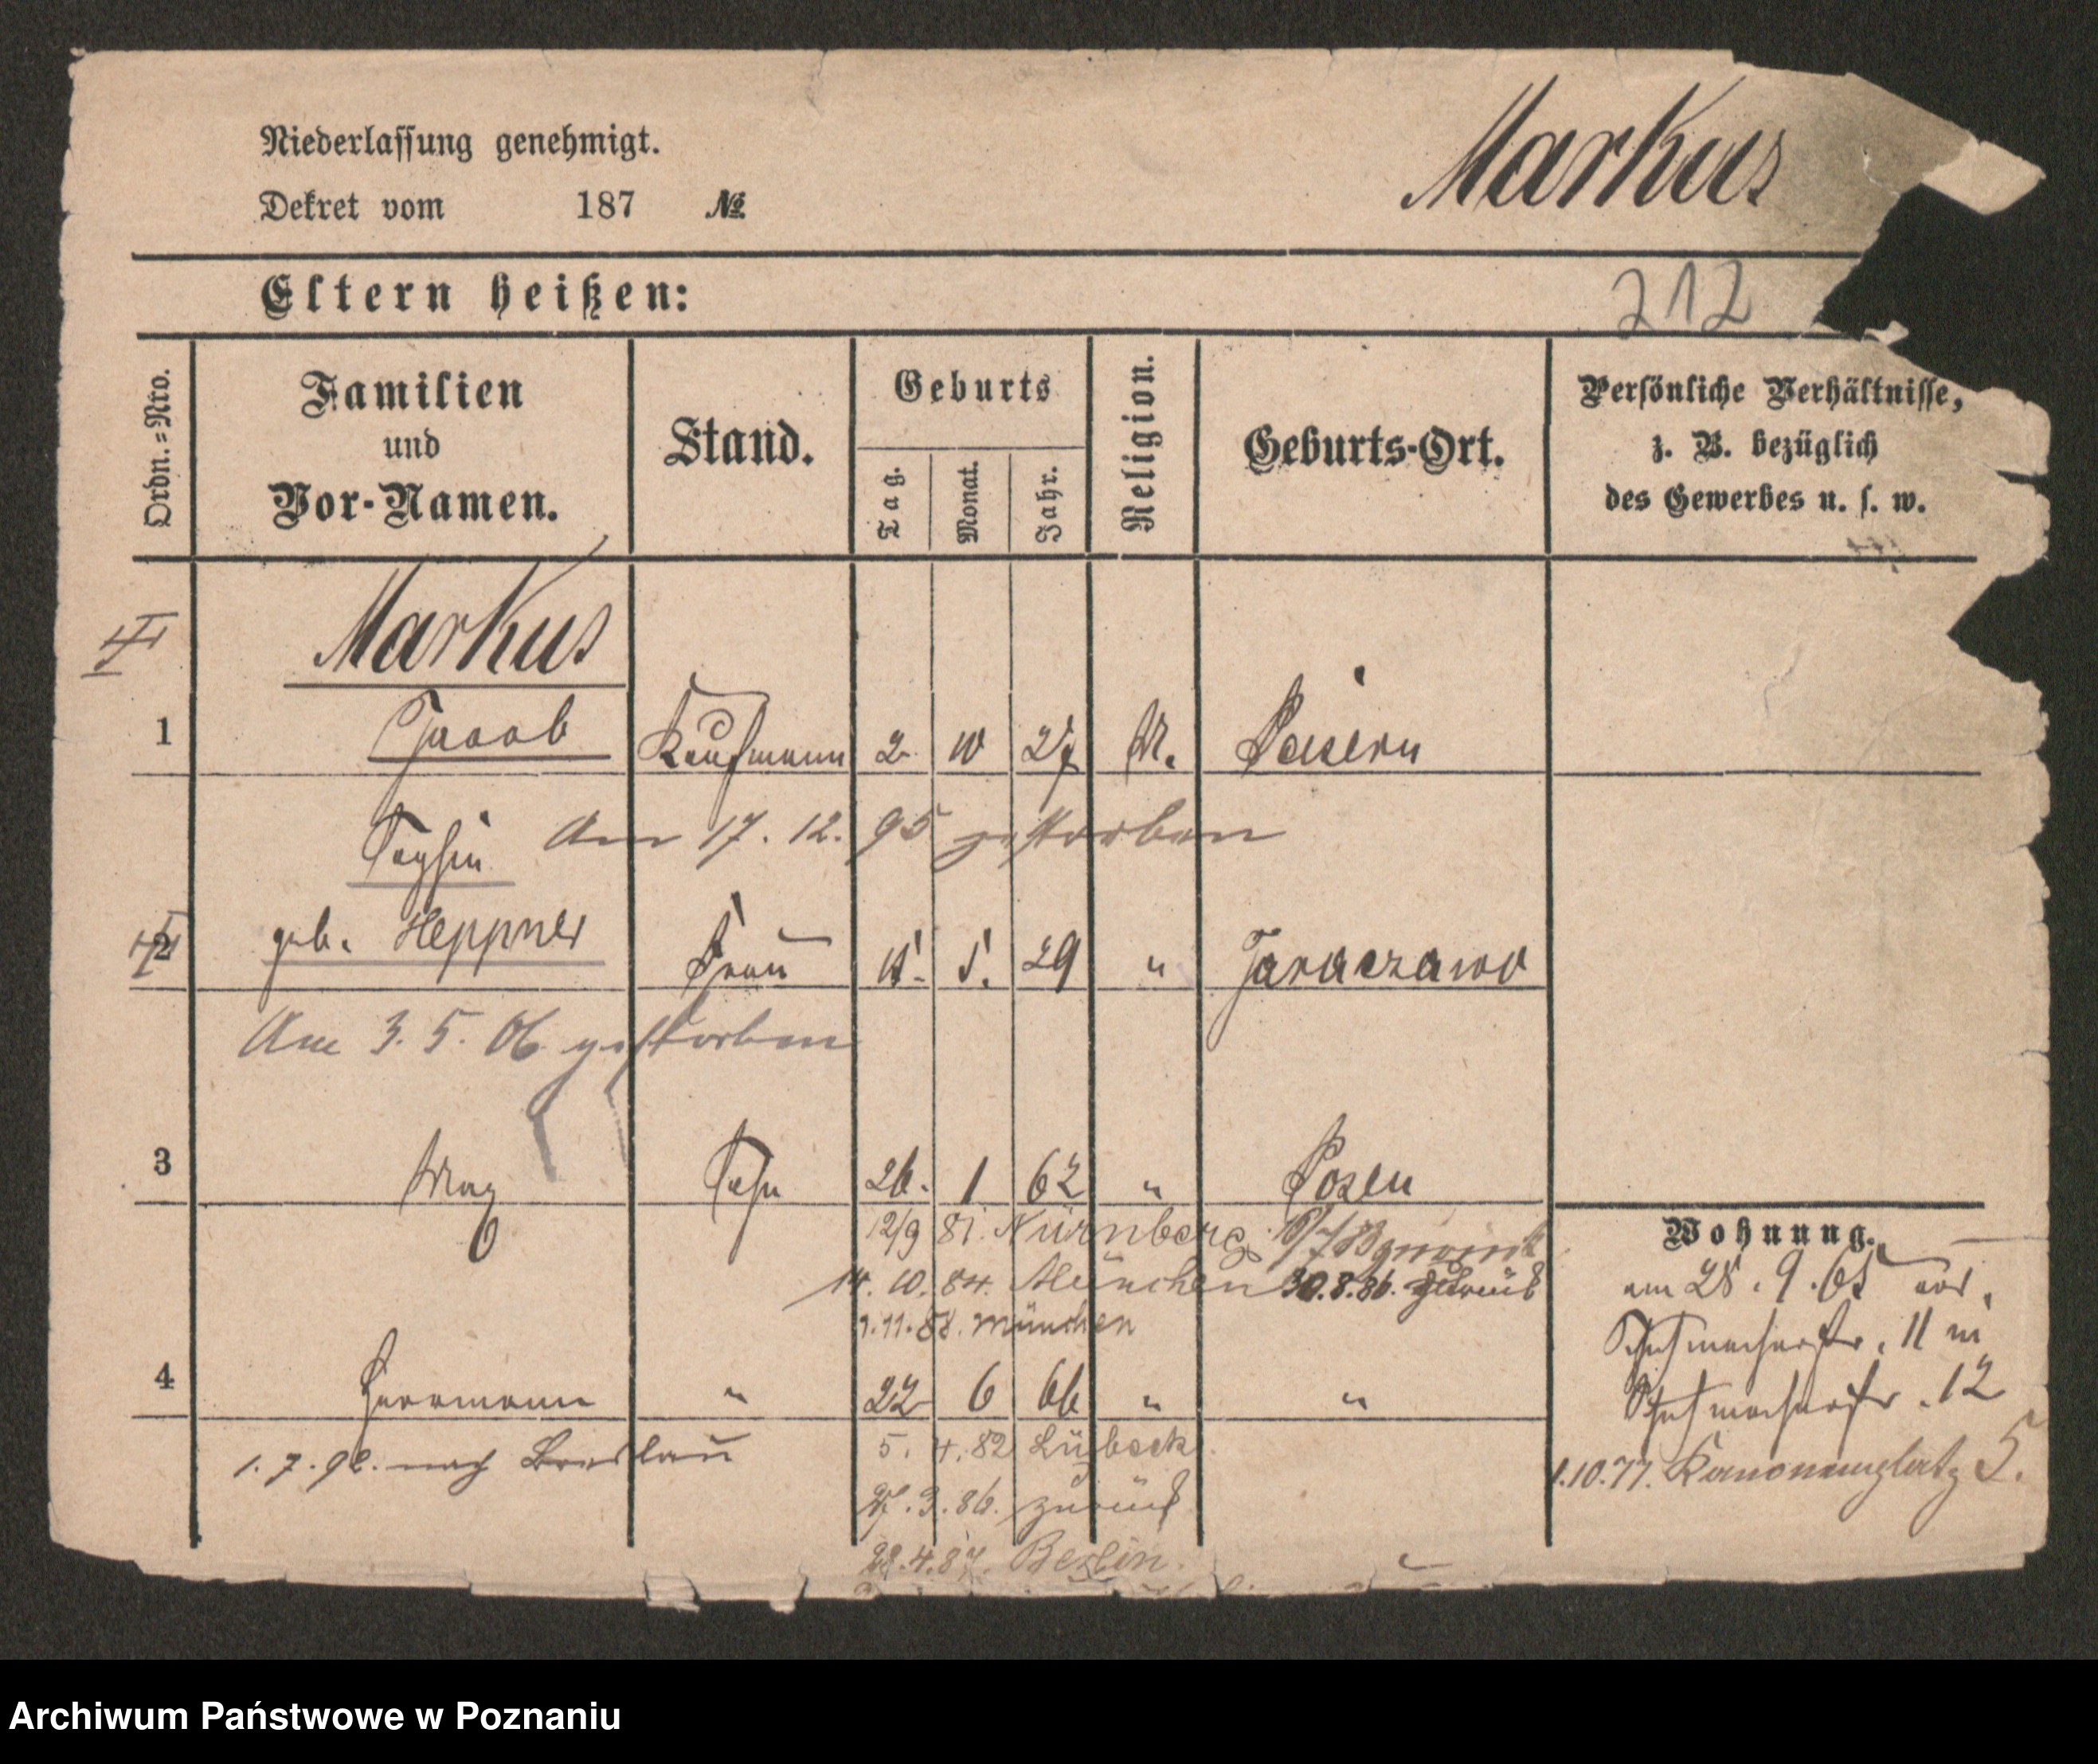 Niederlassung genehmigt.
Dekret vom 187 №
Markus
Eltern heißen:
212
Ordn.=Nro.
Familien
und
Vor-Namen.
Stand.
Geburts
Tag.
Monat.
Jahr.
Religion.
Geburts-Ort.
Persönliche Verhältnisse,
z. B. bezüglich
des Gewerbes u. s. w.
Markus
1 Jacob Kaufmann 2 10 27 M. Peisern
Am 17. 12. 95 gestorben
2 geb. Heppner Frau 5. 29 " Jaraczewo
Am 3. 5. 06 gestorben
3 Max Sohn 26. 1 62 " Posen
12/9 81. Nürnberg
14. 10. 84. München 30. 8. 86. zurück
1. 11. 88. München
4 Herrmann " 22 6 66 " "
1. 7. 92. nach Breslau
5. 4. 82 Lübeck
27. 3. 86. zurück
28. 4. 87. Berlin.
Wohnung.
am 28. 9. 65
Schuhmacherstr. 11 in
Schuhmacherstr. 12
1. 10. 77. Kanonenplatz 5.
Archiwum Państwowe w Poznaniu